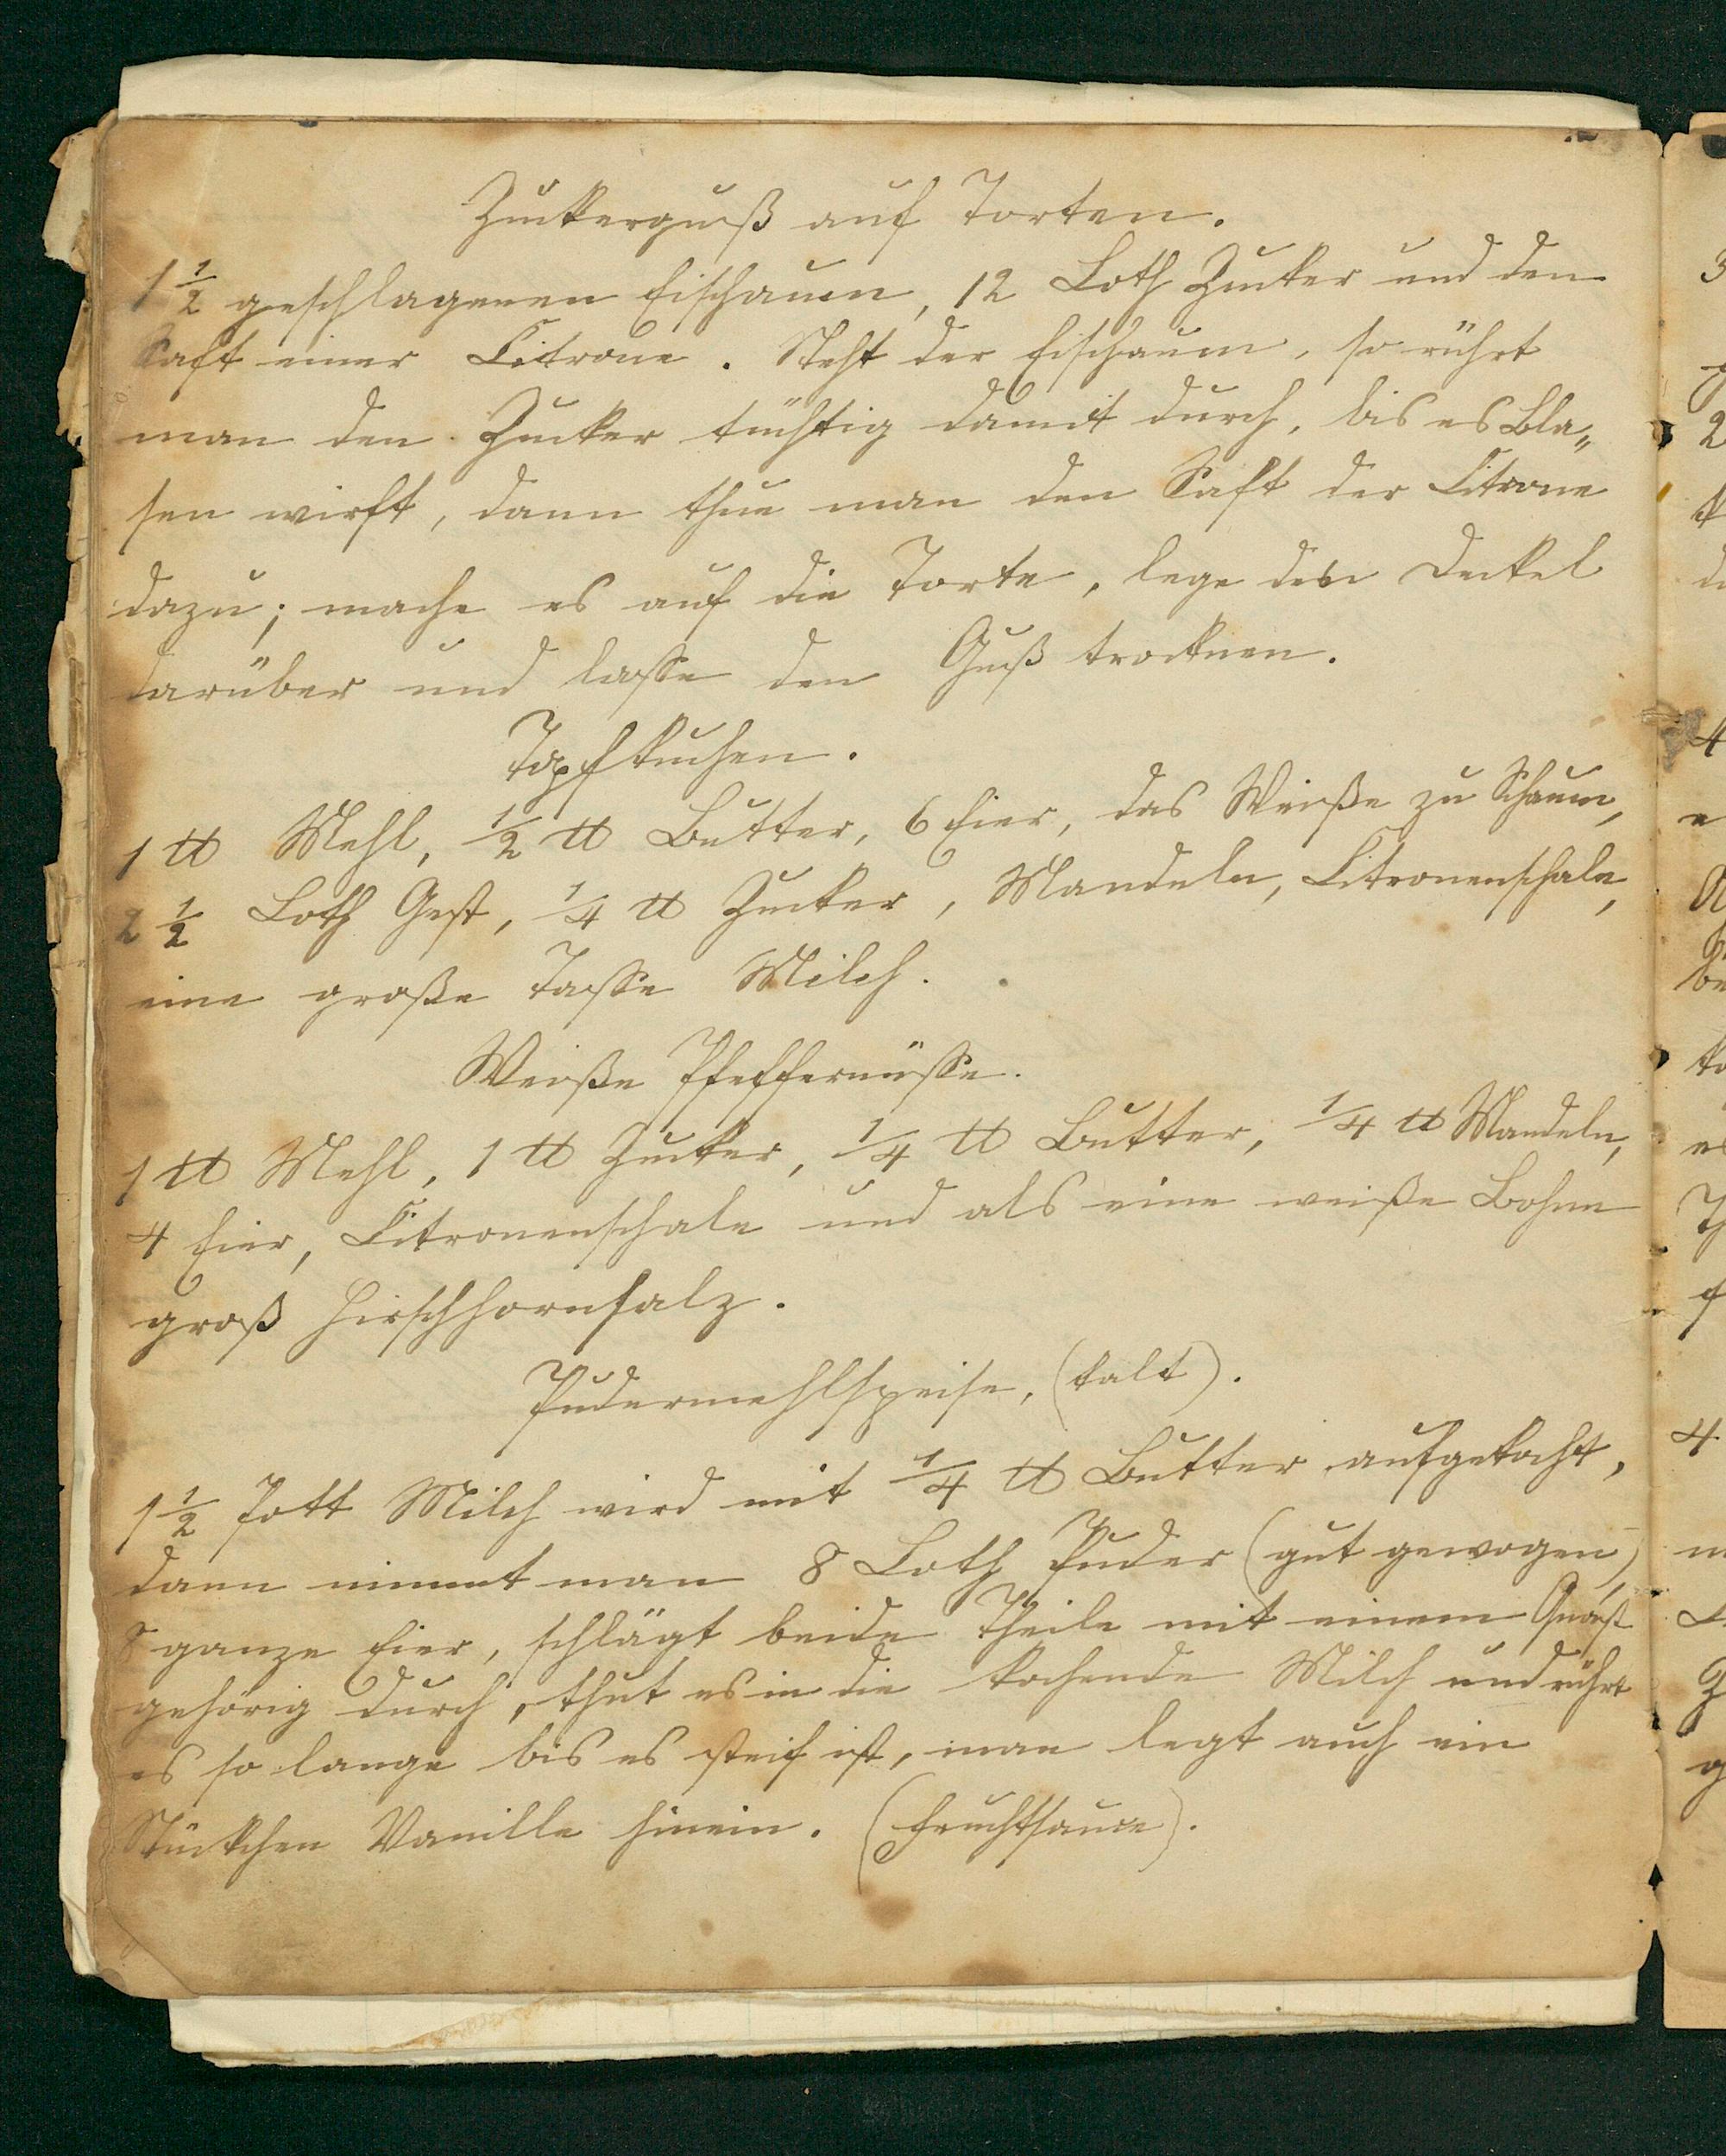 Zuckerguß auf Torten.
1 1/2 geschlagenen Eischaum, 12 Loth Zucker und den
Saft einer Citrone. Steht der Eischaum, so rührt
man den Zucker tüchtig damit durch, bis es Bla„
sen wirft, dann thue man den Saft der Citrone
dazu; mache es auf die Torte, lege den Deckel
darüber und lasse den Guß trocknen.
Topfkuchen.
1 ℔ Mehl, 1/2 ℔ Butter, 6 Eier, das Weiße zu Schaum,
2 1/2 Loth Gest, 1/4 ℔ Zucker, Mandeln, Citronenschale,
eine große Tasse Milch.
Weiße Pfeffernüsse.
1 ℔ Mehl, 1 ℔ Zucker, 1/4 ℔ Butter, 1/4 ℔ Mandeln,
4 Eier, Citronenschale und als eine weiße Bohne
groß Hirschhornsalz.
Pudermehlspeise, (kalt).
1 1/2 Pott Milch wird mit 1/4 ℔ Butter aufgekocht,
dann nimmt man 8 Loth Puder (gut gewogen)
8 ganze Eier, schlägt beide Theile mit einem
gehörig durch, thut es in die kochende Milch und rührt
es so lange bis es steif ist, man legt auch ein
Stückchen Vanille hinein. (Fruchtsauce).